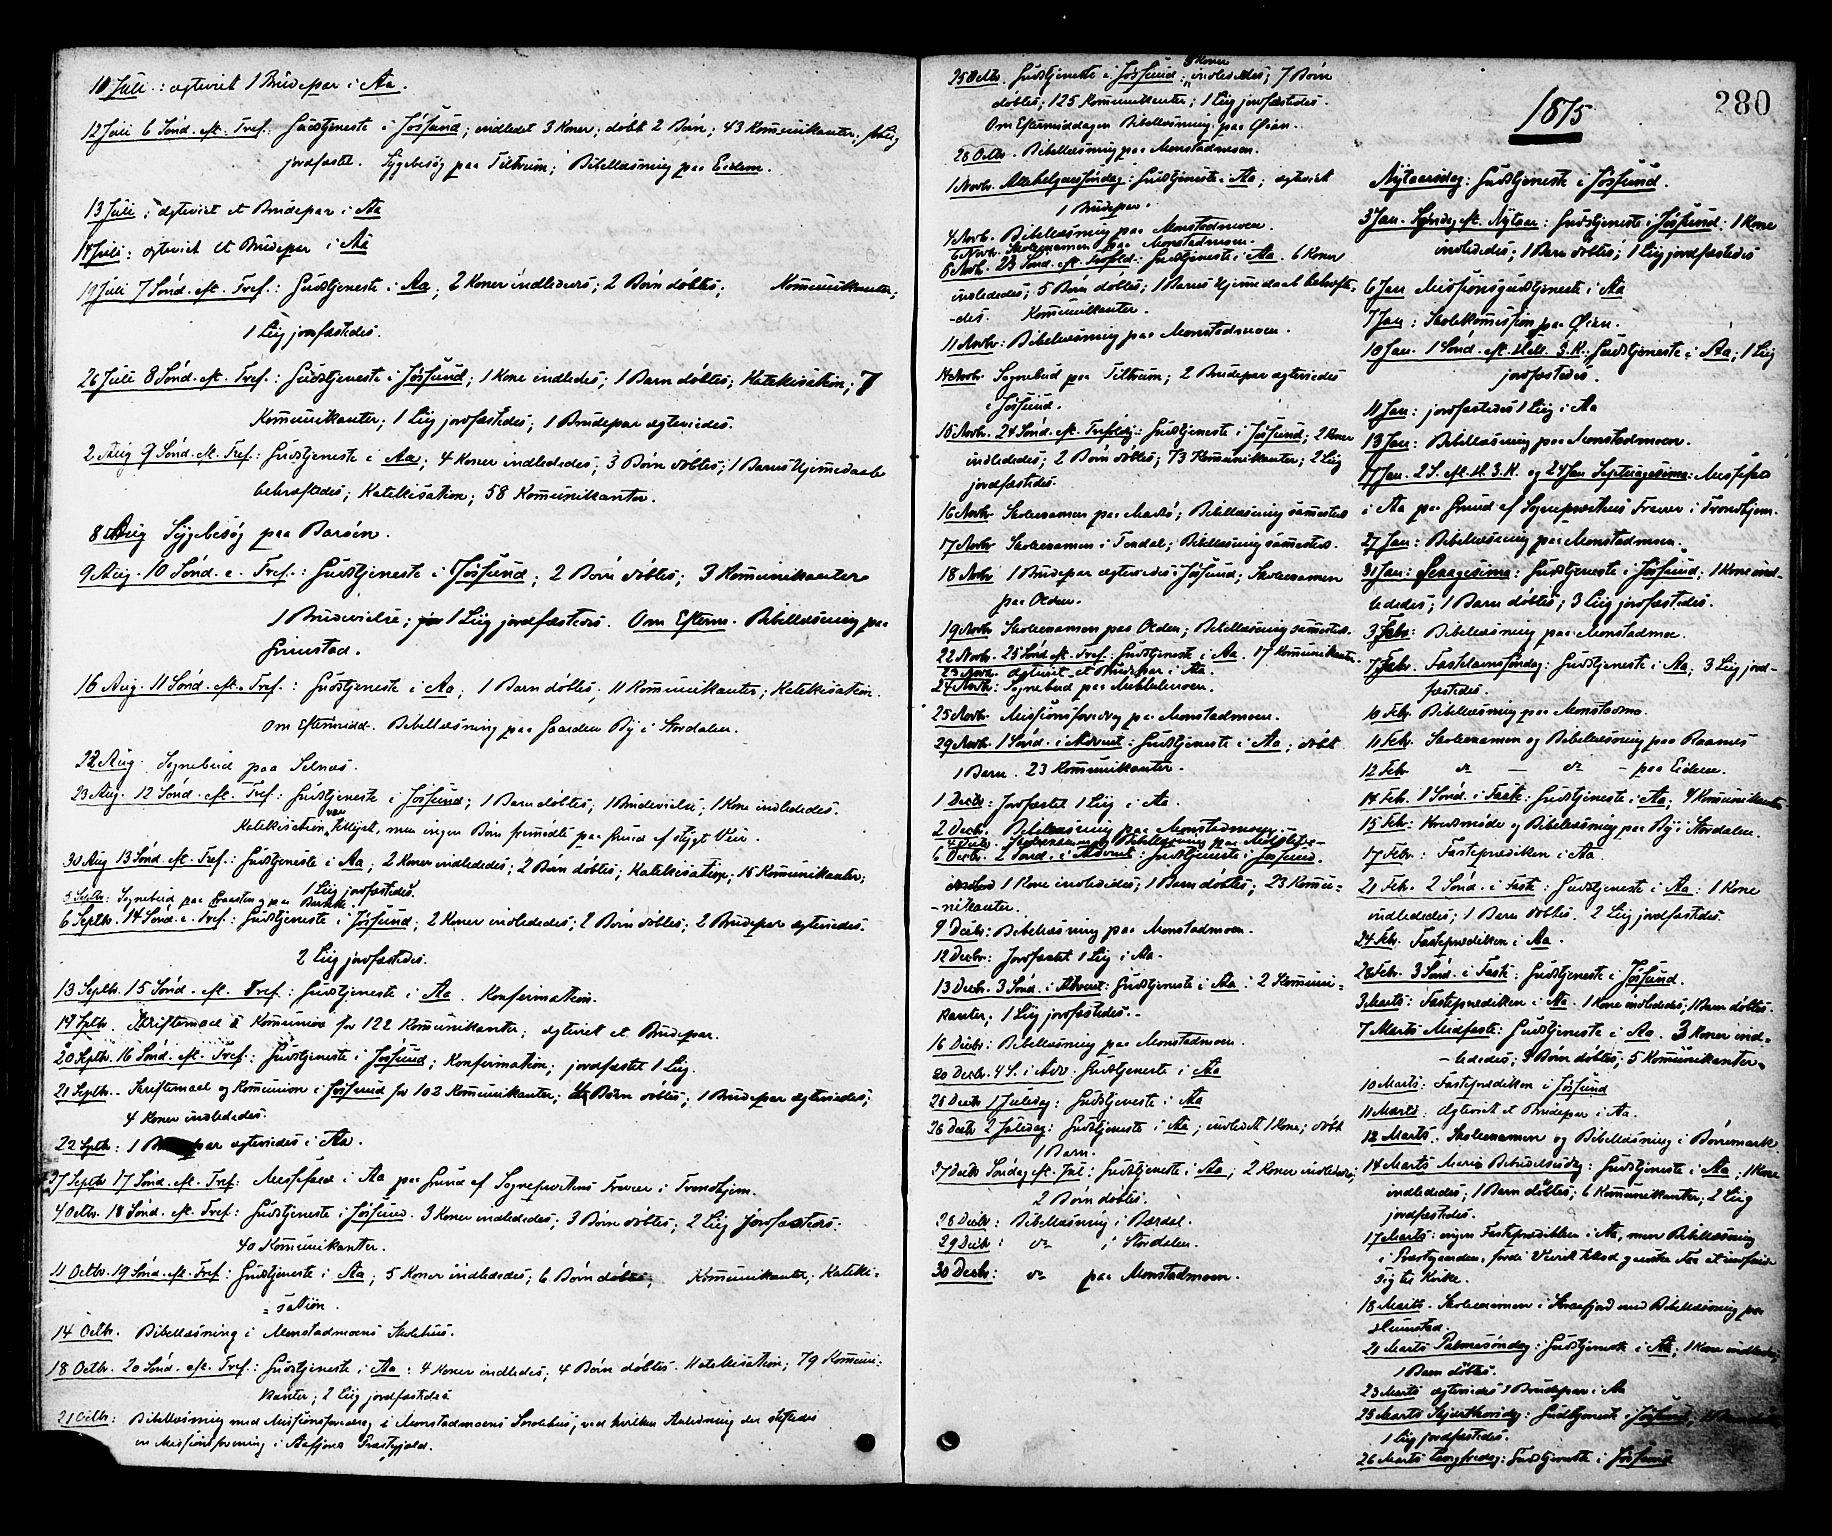 10 Juli: ægteviet 1 Brudepar i Aa.
12 Juli 6 Sónd. eft. Tref.: Gudstjeneste i Jössund; indledet 3 Koner; døbt 2 Børn; 43 Kommunikanter;
jordfæstet. Sygebesøg paa Tiltrum; Bibellæsning paa Eidem.
13 Juli; ægteviet et Brudepar i Aa
14 Juli: ægteviet et Brudepar i Aa
19 Juli 7 Sónd. eft. Tref.: Gudstjeneste i Aa; 2 Koner indlededes; 2 Børn døbtes; Kommunikanter;
1 Liig jordfæstedes.
26 Juli 8 Sónd. eft. Tref.: Gudstjeneste i Jössund; 1 Kone indledes; 1 Barn døbtes; Katekisation; 7
Kommunikanter; 1 Liig jordfæstedes; 1 Brudepar ægteviedes.
2 Aug 9 Sónd. eft. Tref.: Gudstjeneste i Aa; 4 Koner indlededes; 3 Børn døbtes; 1 Barns Hjemmedaab
bekræftedes; Katekisation; 58 Kommunikanter.
8 Aug Sygebesøg paa Barøen.
9 Aug. 10 Sónd. e. Tref.: Gudstjeneste i Jössund; 2 Børn døbtes; 3 Kommunikanter
1 Brudevielse; 1 Liig jordfæstedes. Om Efterm. Bibellæsning paa
Grimstad.
16 Aug. 11 Sónd. eft. Tref.: Gudstjeneste i Aa; 1 Barn døbtes; 11 Kommunikanter; Katekisation.
Om Eftermidd. Bibellæsning paa Gaarden By i Stordalen.
22 Aug. Sognebud paa Selnæs.
23 Aug. 12 Sónd. eft. Tref: Gudstjeneste i Jössund; 1 Barn døbtes; 1 Brudevielse, 1 Kone indlededes.
Katekisation var tillyst, men ingen Børn fremødte paa Grund af stygt Veir.
30 Aug 13 Sónd. eft. Tref.: Gudstjeneste i Aa; 2 Koner indlededes; 2 Børn døbtes; Katekisation; 15 Kommunikanter;
1 Liig jordfæstedes.
5 Septbr: Sognebud paa
6 Septbr. 14 Sónd. e. Tref.: Gudstjeneste i Jössund; 2 Koner indlededes; 2 Børn døbtes; 2 Brudepar ægteviedes.
2 Liig jordfæstedes.
13 Septbr. 15 Sónd. eft. Tref.: Gudstjeneste i Aa. Konfirmation.
14 Sptbr. Skriftemaal & Kommunion for 122 Kommunikanter; ægteviet et Brudepar.
20 Septbr. 16 Sónd. eft. Tref.: Gudstjeneste i Jössund; Konfirmation; jordfæstet 1 Liig.
21 Septbr. Skriftemaal og Kommunion i Jössund for 102 Kommunikanter; 4 Børn døbtes; 1 Brudepar ægteviedes;
4 Koner indlededes.
22 Sptbr: 1 Brudepar ægteviedes i Aa.
27 Septbr 17 Sónd. eft. Tref: Messefald i Aa paa Grund af Sognepræstens Fravær i Trondhjem.
4 Octbr. 18 Sónd. eft. Tref: Gudstjeneste i Jössund. 3 Koner indlededes; 3 Børn døbtes; 2 Liig jordfæstedes:
40 Kommunikanter.
11 Octbr. 19 Sónd. eft. Tref: Gudstjeneste i Aa; 5 Koner indlededes; 6 Børn døbtes; Kommunikanter, Kateki-
=sation.
14 Octbr. Bibellæsning i Monstadmoens Skolehus.
18 Octbr. 20 Sónd. eft. Tref.: Gudstjeneste i Aa: 4 Koner indledes; 4 Børn døbtes. Katekisation; 79 Kommuni-
kanter; 2 Liig jordfæstedes
21 Octbr: Bibellæsning med Missionsforedrag i Monstadmoens Skolehus; ved hvilken Anledning der stiftedes
en Missionsforening i Aafjorns Præstegjæld.
25 Octbr. Gudstjeneste i Jössund; 8 Koner indlededes; 7 Børn
døbtes; 125 Kommunikanter; 1 Liig jordfæstedes.
Om Eftermiddagen Bibellæsning paa Øian.
28 Octbr. Bibellæsning paa Monstadmoen.
1 Novbr. Allehelgenssøndag: Gudstjeneste i Aa; ægteviet
1 Brudepar.
4 Novb. Bibellæsning paa Monstadmoen.
6 Novbr. Skoleexamen paa Monstadmoen.
8 Novb. 23 Sónd. eft. Trefold.: Gudstjeneste i Aa. 6 Koner
indlededes; 5 Børn døbtes; 1 Barns Hjemmedaab bekræfte-
-des. Kommunikanter.
11 Novbr: Bibellæsning paa Monstadmoen.
14 Novbr. Sognebud paa Tiltrum; 2 Brudepar ægteviedes
i Jössund.
15 Novbr. 24 Sónd. eft. Trefoldig: Gudstjeneste i Jössund; 2 Koner
indlededes; 2 Børn døbtes; 73 Kommunikanter; 2 Liig
jordfæstedes.
16 Novbr. Skoleexamen paa; Bibellæsning sammesteds
17 Novbr Skoleexamen i; Bibellæsning sammesteds.
18 Novbr 1 Brudepar ægteviedes i Jössund; Skoleexamen
paa Olden.
19 Novbr Skoleexamen paa Olden; Bibellæsning sammesteds.
22 Novbr. 25 Sónd. eft. Tref: Gudstjeneste i Aa. 17 Kommunikanter.
23 Novbr. ægteviet et Brudepar i Aa.
24 Novbr: Sognebud paa
25 Novbr. Missionsforedrag paa Monstadmoen.
29 Novbr. 1 Sónd. i Advent: Gudstjeneste i Aa; døbt
1 Barn. 23 Kommunikanter.
1 Decbr: Jordfæstet 1 Liig i Aa.
2 Decbr. Bibellæsning paa Monstadmoen.
4 Decbr. Skoleexamen og Bibellæsning paa
6 Decbr. 2 Sond. i Advent: Gudstjeneste i Jössund.
1 Kone indlededes; 1 Barn døbtes; 23 Kommu-
-nikanter.
9 Decbr: Bibellæsning paa Monstadmoen.
12 Decbr: Jordfæstet 1 Liig i Aa.
13 Decbr. 3 Sónd. i Advent: Gudstjeneste i Aa: 2 Kommuni-
kanter; 1 Liig jordfæstedes.
16 Decbr: Bibellæsning paa Monstadmoen.
20 Decbr. 4 S. i Adv: Gudstjeneste i Aa
25 Decbr 1 Juledag: Gudstjeneste i Aa
26 Decbr 2 Juledag: Gudstjeneste i Aa; indledet 1 Kone; døbt
1 Barn.
27 Decbr Søndag eft. Jul: Gudstjeneste i Aa; 2 Koner indlededes;
2 Børn døbtes.
28 Decbr: Bibellæsning i Bærdal.
29 Decbr: do i Stordalen.
30 Decbr: do paa Monstadmoen.
280
1875
Nytaarsdag: Gudstjeneste i Jössund.
3 Jan. Søndag eft. Nytaar: Gudstjeneste i Jössund: 1 Kone
indlededes; 1 Barn døbtes; 1 Liig jordfæstedes
6 Jan Missionsgudstjeneste i Aa
7 Jan: Skolekommission paa Øian.
10 Jan. 1 Sónd. eft. Hell. 3. K.: Gudstjeneste i Aa; 1 Liig
jordfæstedes.
11 Jan: jordfæstedes 1 Liig i Aa
13 Jan: Bibellæsning paa Monstadmoen.
17 Jan. 2 S. eft. H. 3. K. og 24 Jan Septuagesima: Messefald
i Aa paa Grund af Sognepræstens Fravær i Trondhjem.
27 Jan: Bibellæsning paa Monstadmoen.
31 Jan: Sexagesima: Gudstjeneste i Jössund; 1 Kone ind-
lededes; 1 Barn døbtes; 3 Liig jordfæstedes.
3 Febr: Bibellæsning paa Monstadmoe.
7 Febr. Fastelavnssøndag: Gudstjeneste i Aa; 3 Liig jord-
fæstedes.
10 Febr. Bibellæsning paa Monstadmo.
11 Febr. Skoleexamen og Bibellæsning paa Raanes
12 Febr do — do - paa Eidem.
14 Febr. 1 Sónd. i Faste: Gudstjeneste i Aa; 4 Kommunikanter
15 Febr: Kredsmøde og Bibellæsning paa By i Stordalen.
17 Febr: Fasteprædiken i Aa.
21 Febr. 2 Sónd. i Faste: Gudstjeneste i Aa: 1 Kone
indlededes; 1 Barn døbtes. 2 Liig jordfæstedes.
24 Febr. Fasteprædiken i Aa.
28 Febr. 3 Sónd. i Faste: Gudstjeneste i Jössund.
3 Marts: Fasteprædiken i Aa. 1 Kone indlededes; 1 Barn døbtes.
7 Marts Midfaste: Gudstjeneste i Aa. 3 Koner ind-
-lededes; 4 Børn døbtes; 5 Kommunikanter.
10 Marts: Fasteprædiken i Jössund
11 Marts: Ægteviet et Brudepar i Aa.
12 Marts. Skoleexamen og Bibellæsning i Børmark
14 Marts Mariæ Bebudelsesdag: Gudstjeneste i Aa; 1 Kone
indlededes; 1 Barn døbtes; 6 Kommunikanter; 2 Liig
jordfæstedes.
17 Marts: ingen Fasteprædiken i Aa, men Bibellæsning
i Præstegaarden, fordi Veiret tillod ganske Faa at indfinde
sig til Kirke.
18 Marts. Skoleexamen i med Bibellæsning paa
Humstad.
21 Marts Palmesøndag: Gudstjeneste i Aa; 1 Kone indlededes;
1 Barn døbtes.
23 Marts ægteviedes 1 Brudepar i Aa
25 Marts Skjærthorsdag: Gudstjeneste i Jössund;
1 Liig jordfæstedes.
26 Marts Langfredag: Gudstjeneste i Jössund